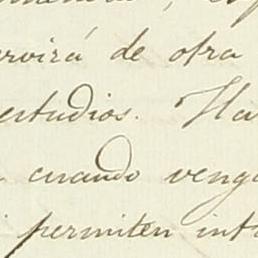 ervirá de otra
estudios. Ha
cuando venga
permiten int